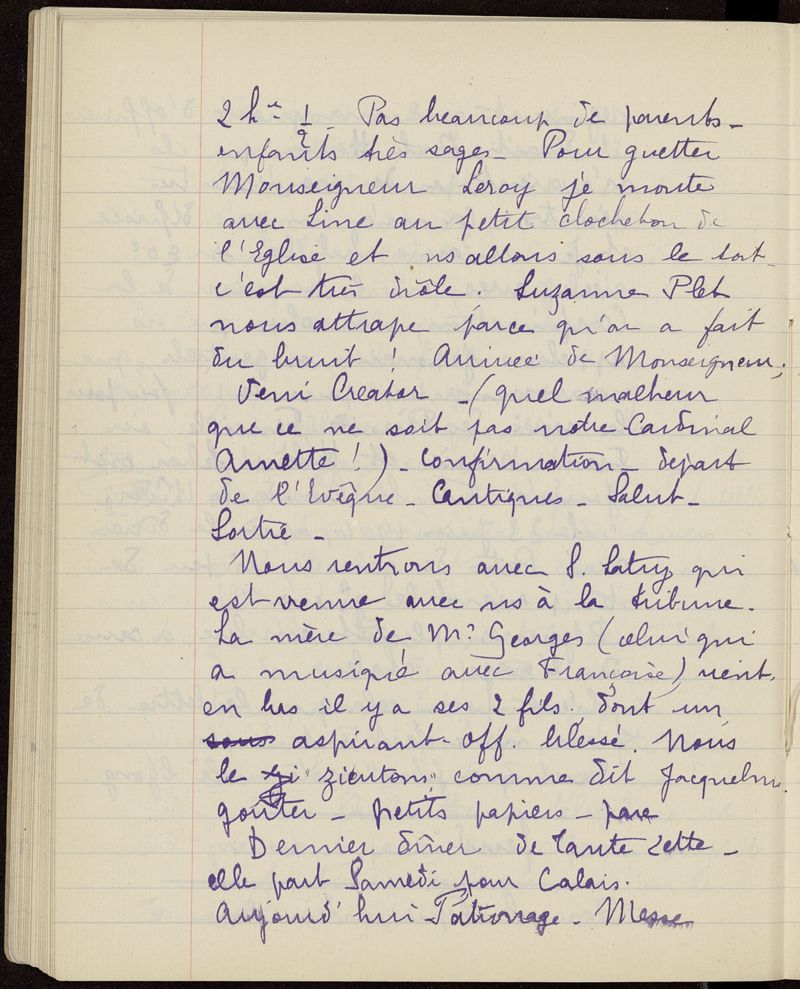 2 hres 1/2 - Pas beaucoup de parents -
enfants très sages - Pour guetter
Monseigneur Leroy je monte
avec Line au petit clocheton de
l'Eglise et ns allons sous le toit -
c'est très drôle. Suzanne Plet
nous attrape parce qu'on a fait
du bruit ! Arrivée de Monseigneur ;
Veni Creator - (quel malheur
que ce ne soit pas notre Cardinal
Amette !) - Confirmation - départ
de l'Evêque - Cantiques - Salut -
Sortie -
Nous rentrons avec S. Latry qui
est venue avec ns à la tribune.
La mère de Mr Georges (celui qui
a musiqué avec Françoise) vient.
en bas il y a ses 2 fils. dont un
sous aspirant-off. blessé. Nous
le zi "zieutons" comme dit Jacqueline.
goûter - petits papiers -
Dernier dîner de Tante Zette -
elle part Samedi pour Calais.
Aujourd'hui Patronage - Messe